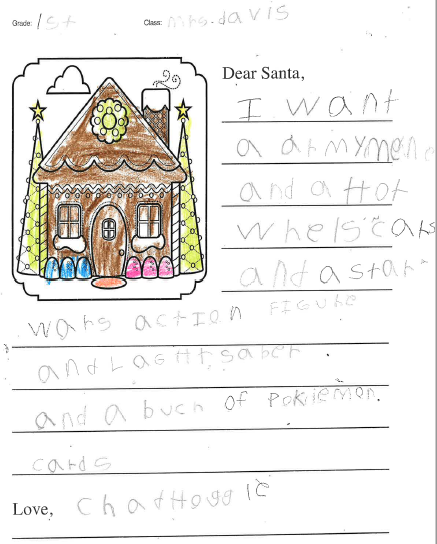 Grade: 1st Class: mrs.davis
Dear Santa,
I want
a armymene
and a Hot
whelscars
and a star-
wars action FIGUre
and LAGHtsaber.
and a buch of Pokiemon.
cards
Love, ChadHogg